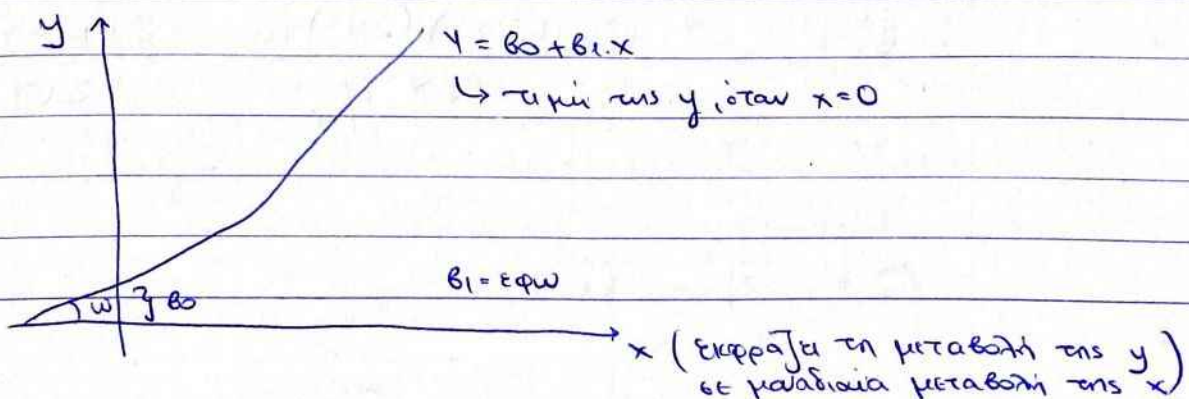 y
Y = β0 + β1.x
↳ τιμή της y, όταν x=0
ω } β0
β1 = εφω
x (εκφράζει τη μεταβολή της y
σε μοναδιαία μεταβολή της x)